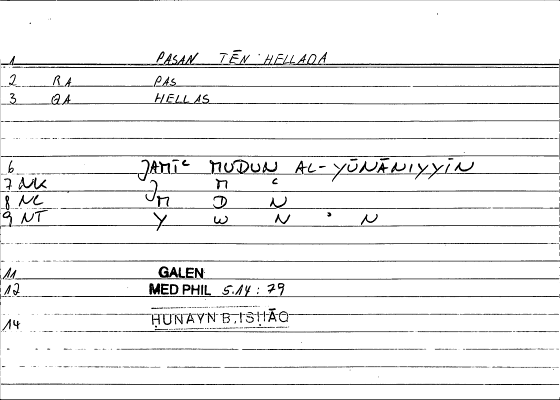 1 PASAN TĒN HELLADA
2 RA PAS
3 QA HELLAS
6 JAMĪʿ MUDUN AL-YŪNĀNIYYĪN
7 NK J M ʿ
8 NL M D N
9 NT Y W N ʾ N
11 GALEN
12 MED PHIL 5.14 : 79
14 ḤUNAYN B. ISḤĀQ